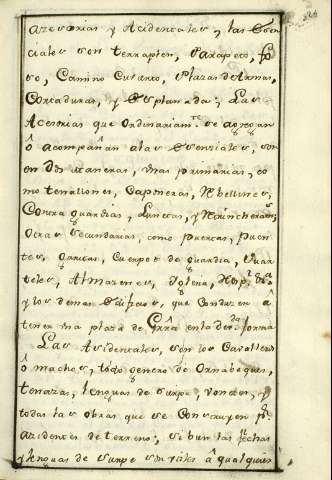 azesorias y Acidentales, y las Esen
ciales son terraplen, Parapeto, fo
so, Camino Cuvierto, Plazas de Armas,
Cortaduras, y Esplanada; Las
Acesorias que Ordinariam.te se agregan
ô acompañan alas Esenziales, son
en dos maneras, unas primarias, co
mo tenallones, Caponeras, Rebellines,
Contra guardias, Lunetas, y
Otras secundarias, como puertas, puen
tes, garitas, Cuerpos de guardia, Quar
teles, Almazenes, Yglesia,
y los demas Edificios, que Conduzen â
tener una plaza de Grrâ enla da forma
Las Acidentales, son los Cavalleros
ô machos, todo genero de Ornabeques,
tenazas, lenguas de surpe, vonetes, y
todas las obras que se Construyen pr
azidentes de terreno; si bien las flechas
y lenguas de surpe son utiles â qualquier